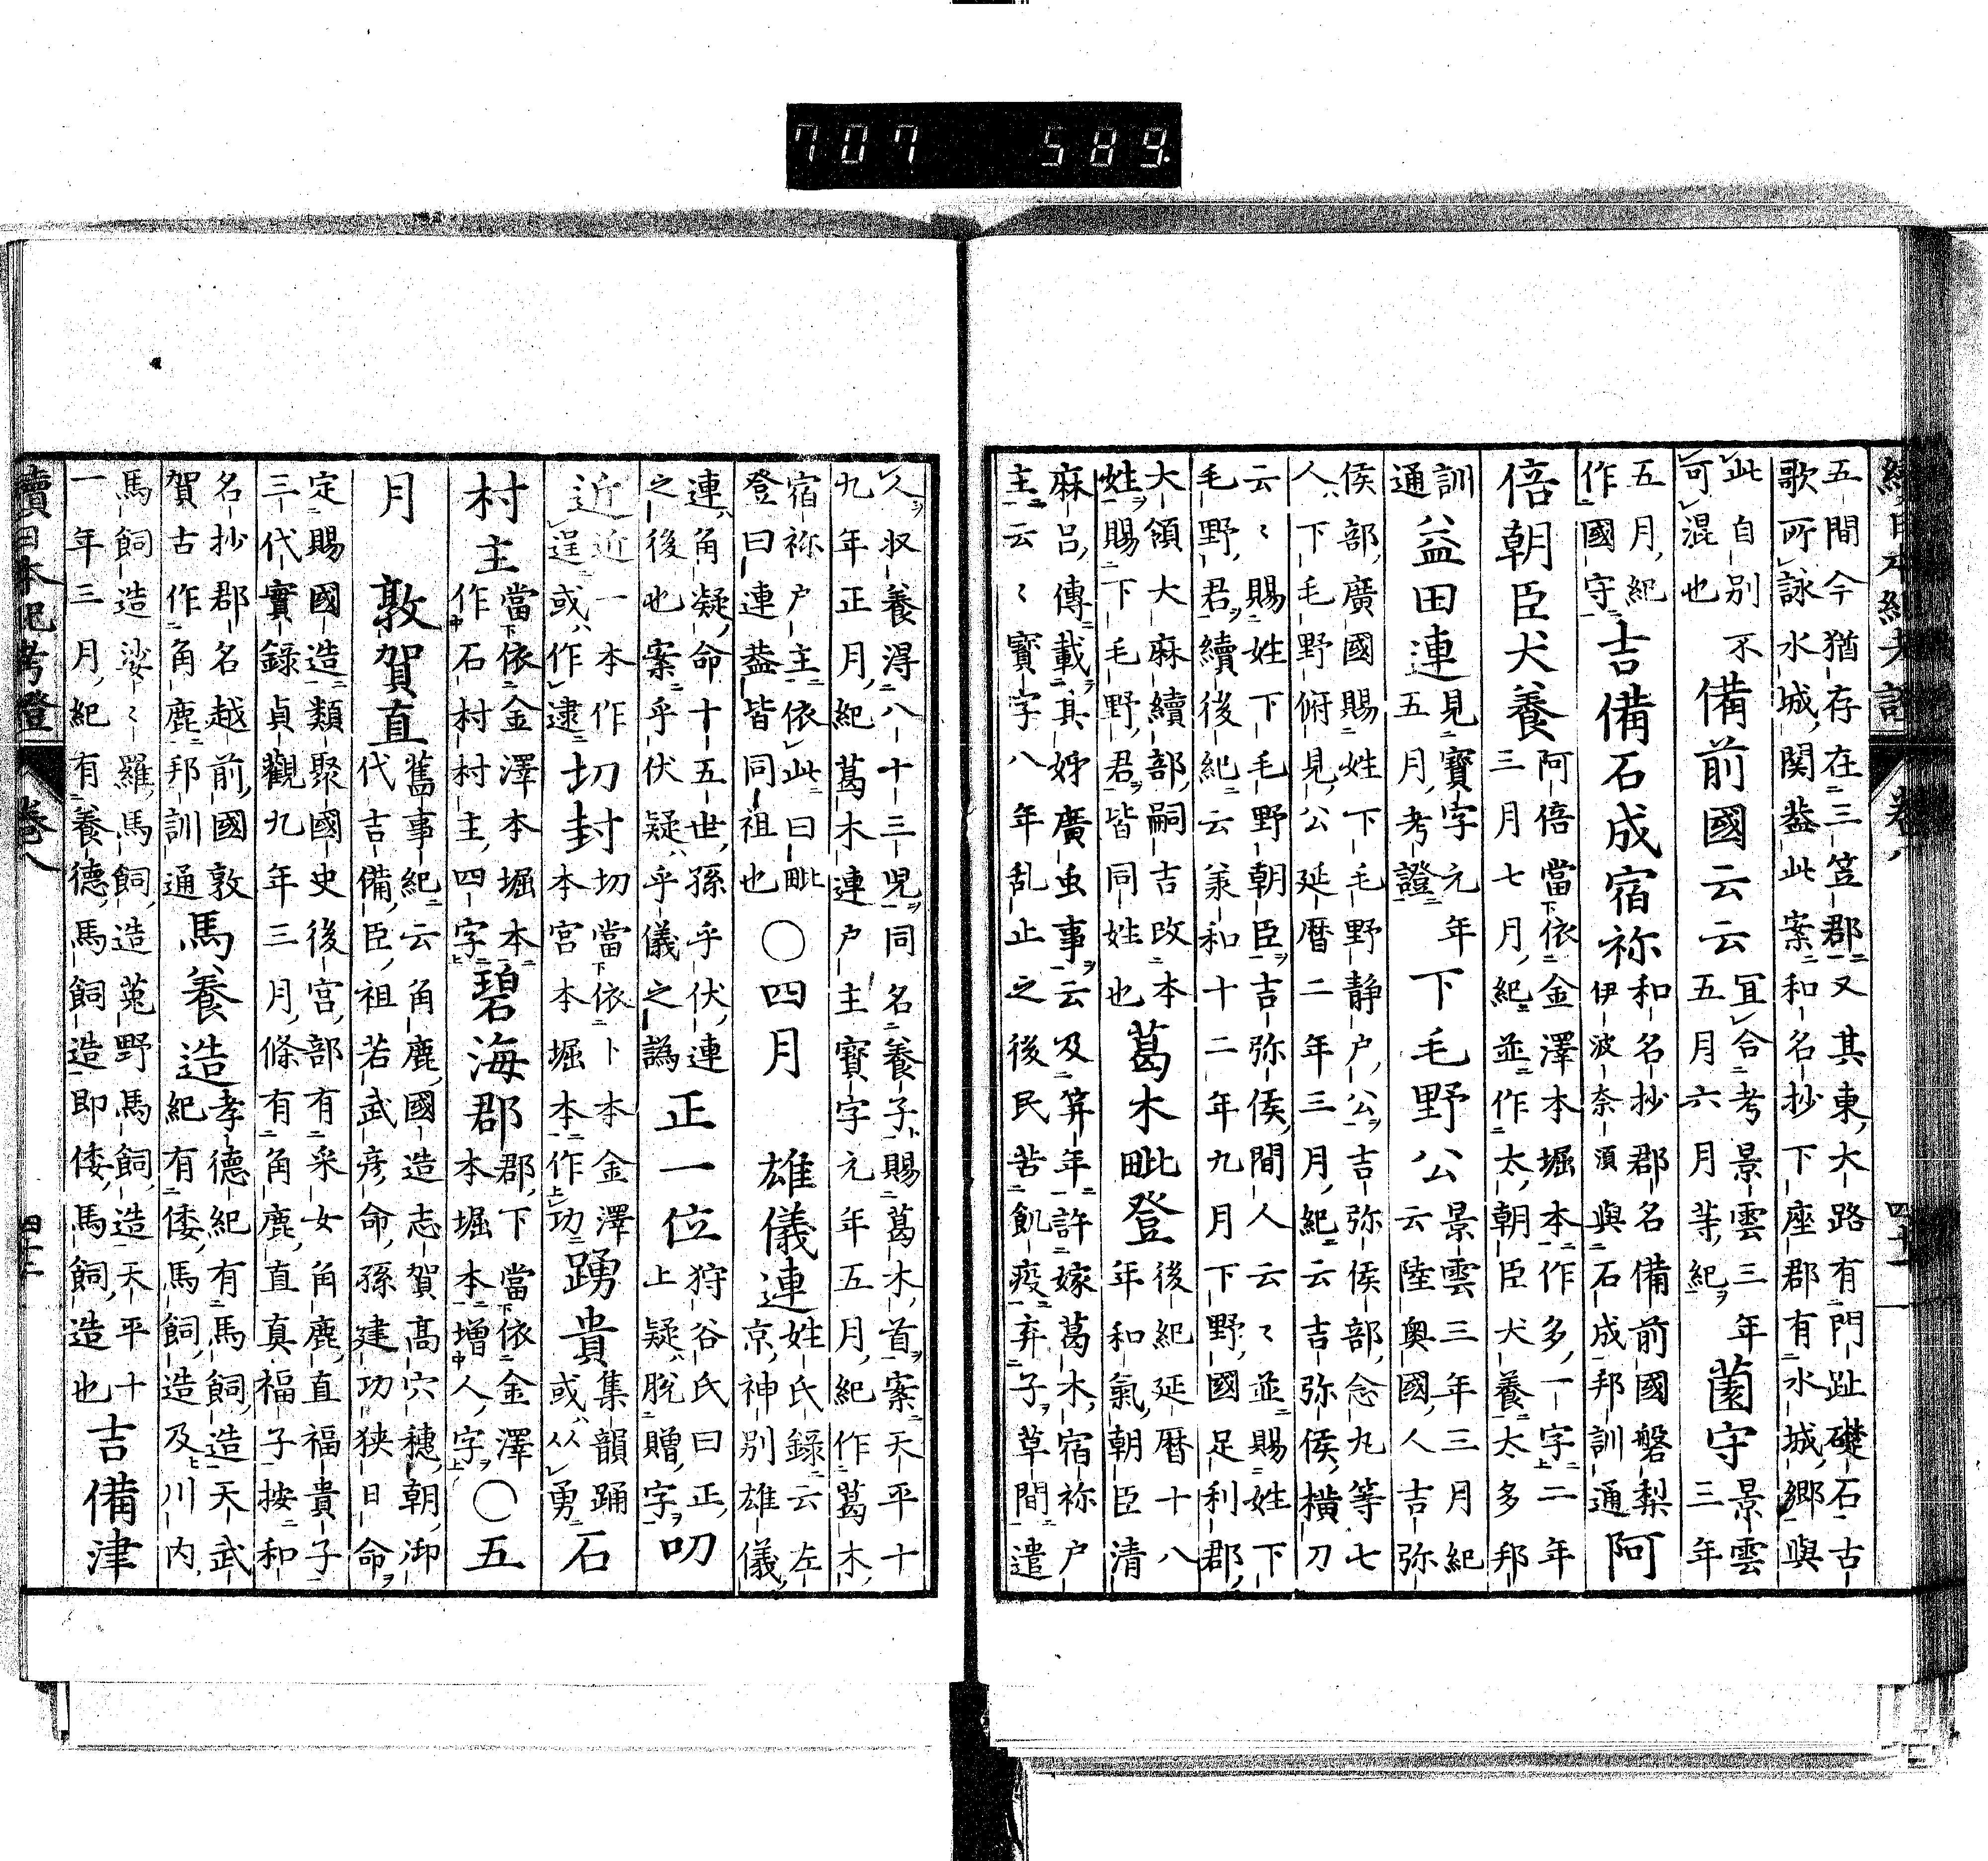 續日本紀考證 卷八 四十一
五間今猶存在三笠郡又其東大路有門趾礎石古
歌所詠水城関葢此案和名抄下座郡有水城郷與
此自別不
可混也
備前國云云
冝合考景雲三年
五月六月等紀
薗守
景雲
三年
五月紀
作國守
吉備石成宿祢
和名抄郡名備前國磐梨
伊波奈須與石成邦訓通
阿
倍朝臣犬養
阿倍當依金澤本堀本作多一字二年
三月七月紀並作太朝臣犬養太多邦
訓
通
益田連
見寶字元年
五月考證
下毛野公
景雲三年三月紀
云陸奥國人吉弥
侯部廣國賜姓下毛野静戸公吉弥侯部念丸等七
人下毛野俯見公延暦二年三月紀云吉弥侯横刀
云〻賜姓下毛野朝臣吉弥侯間人云〻並賜姓下
毛野君續後紀云羕和十二年九月下野國足利郡
大領大麻續部嗣吉改本
姓賜下毛野君皆同姓也
葛木毗登
後紀延暦十八
年和氣朝臣清
麻呂傳載其姊廣虫事云及笄年許嫁葛木宿祢戸
主云〻寶字八年乱止之後民苦飢疫弃子草間遣
人収養得八十三児同名養子賜葛木首案天平十
九年正月紀葛木連戸主寳字元年五月紀作葛木
宿祢戸主依此曰毗
登曰連葢皆同祖也
〇四月 雄儀連
姓氏録云左
京神別雄儀
連角凝命十五世孫乎伏連
之後也案乎伏疑乎儀之譌
正一位
狩谷氏曰正
上疑脱贈字
叨
近
近一本作
逞或作逮
切封
切當依卜本金澤
本宮本堀本作功
踴貴
集韻踊
或从勇
石
村主
當依金澤本堀本
作石村村主四字
碧海郡
郡下當依金澤
本堀本增人字
〇五
月 敦賀直
舊事紀云角鹿國造志賀髙穴穂朝御
代吉備臣祖若武彦命孫建功狭日命
定賜國造類聚國史後宮部有采女角鹿直福貴子
三代實録貞觀九年三月條有角鹿直真福子按和
名抄郡名越前國敦
賀古作角鹿邦訓通
馬養造
孝德紀有馬飼造天武
紀有倭馬飼造及川内
馬飼造娑〻羅馬飼造菟野馬飼造天平十
一年三月紀有養德馬飼造即倭馬飼造也
吉備津
續日本紀考證 卷八 四十二
707 589.